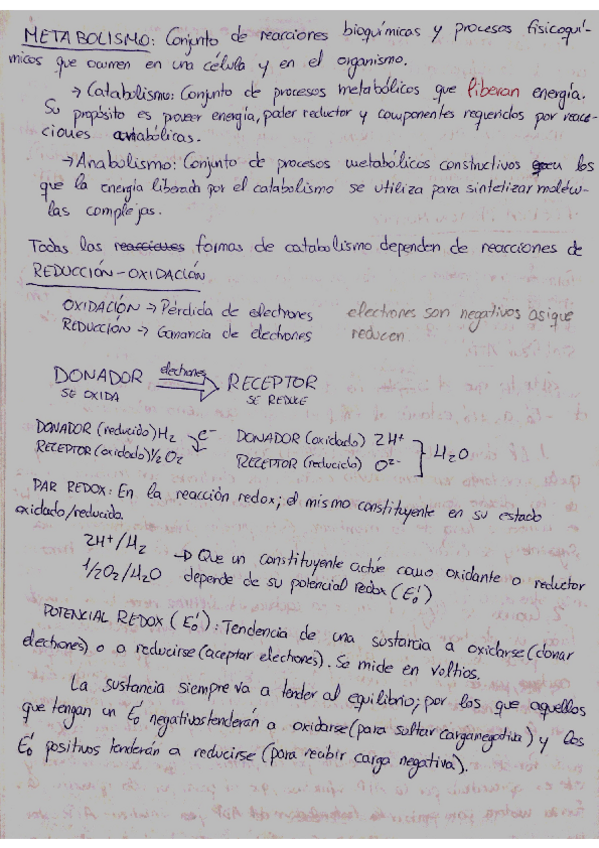 METABOLISMO: Conjunto de reacciones bioquímicas y procesos fisicoquí-
micos que ocurren en una célula y en el organismo.
→ Catabolismo: Conjunto de procesos metabólicos que liberan energía.
Su propósito es poveer energía, poder reductor y componentes requeridos por reac-
ciones anabólicas.
→ Anabolismo: Conjunto de procesos metabólicos constructivos en los
que la energía liberada por el catabolismo se utiliza para sintetizar molécu-
las complejas.
Todas las reacciones formas de catabolismo dependen de reacciones de
REDUCCIÓN-OXIDACIÓN
OXIDACIÓN → Pérdida de electrones electrones son negativos asique
REDUCCION → Ganancia de electrones reducen
DONADOR electrones RECEPTOR
SE OXIDA SE REDUCE
DONADOR (reducido) H2 e- DONADOR (oxidado) 2H+
RECEPTOR (oxidado) 1/2 O2 RECEPTOR (reducido) O2- H2O
PAR REDOX: En la reacción redox; el mismo constituyente en su estado
oxidado/reducido.
2H+/H2 → Que un constituyente actúe como oxidante o reductor
1/2O2/H2O depende de su potencial redox (E0')
POTENCIAL REDOX (E0'): Tendencia de una sustancia a oxidarse (donar
electrones) o a reducirse (aceptar electrones). Se mide en voltios.
La sustancia siempre va a tender al equilibrio; por los que aquellos
que tengan un E0' negativos tenderán a oxidarse (para soltar carga negativa) y los
E0' positivos tenderán a reducirse (para recibir carga negativa).